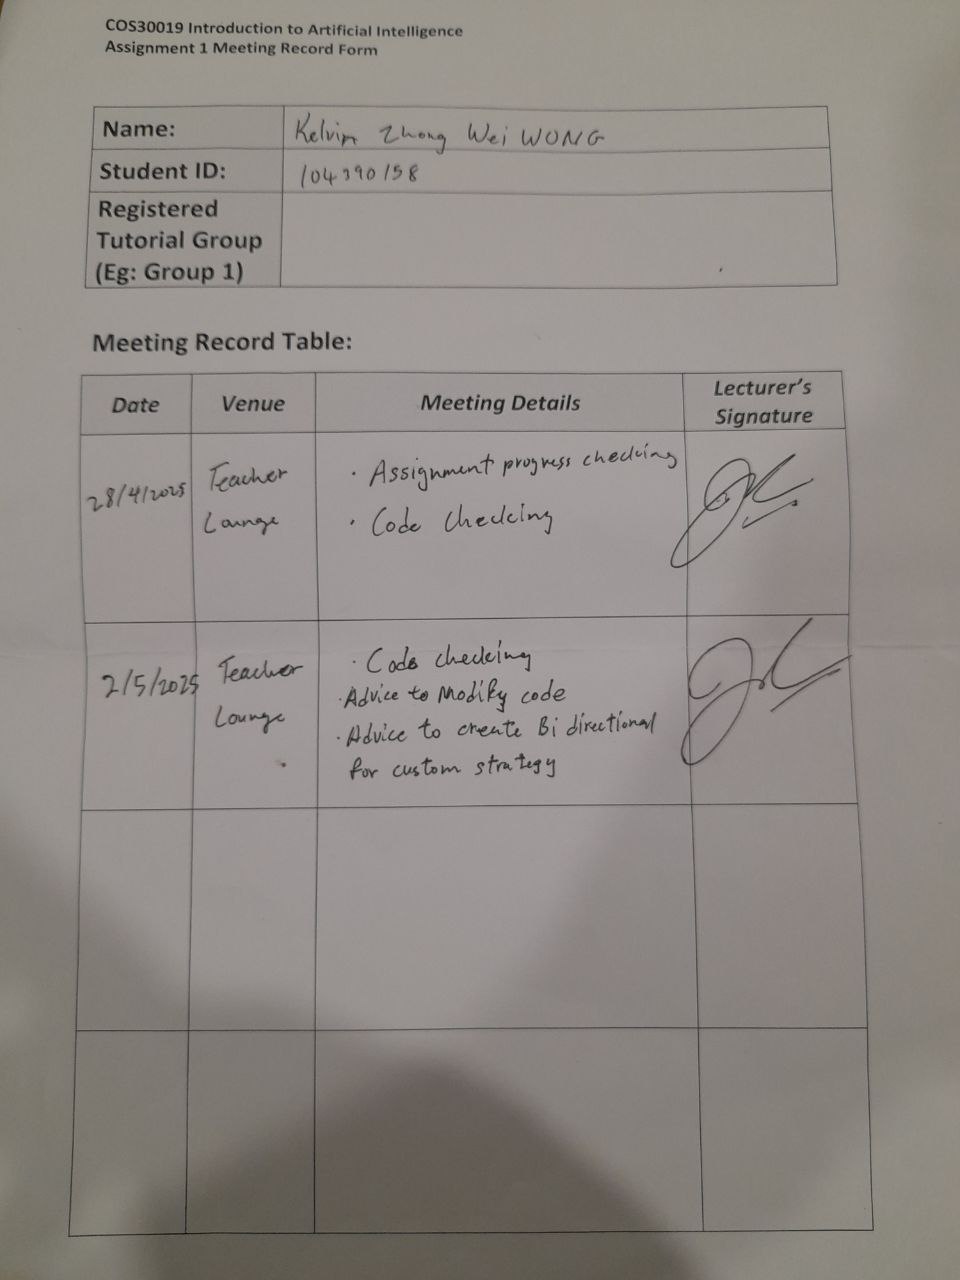 COS30019 Introduction to Artificial Intelligence
Assignment 1 Meeting Record Form
Name: Kelvin Zhong Wei WONG
Student ID: 104390158
Registered
Tutorial Group
(Eg: Group 1)
Meeting Record Table:
Date Venue Meeting Details Lecturer's Signature
28/4/2025 Teacher Lounge
· Assignment progress checking
· Code checking
2/5/2025 Teacher Lounge
· Code checking
· Advice to Modify code
· Advice to create Bi directional
for custom strategy